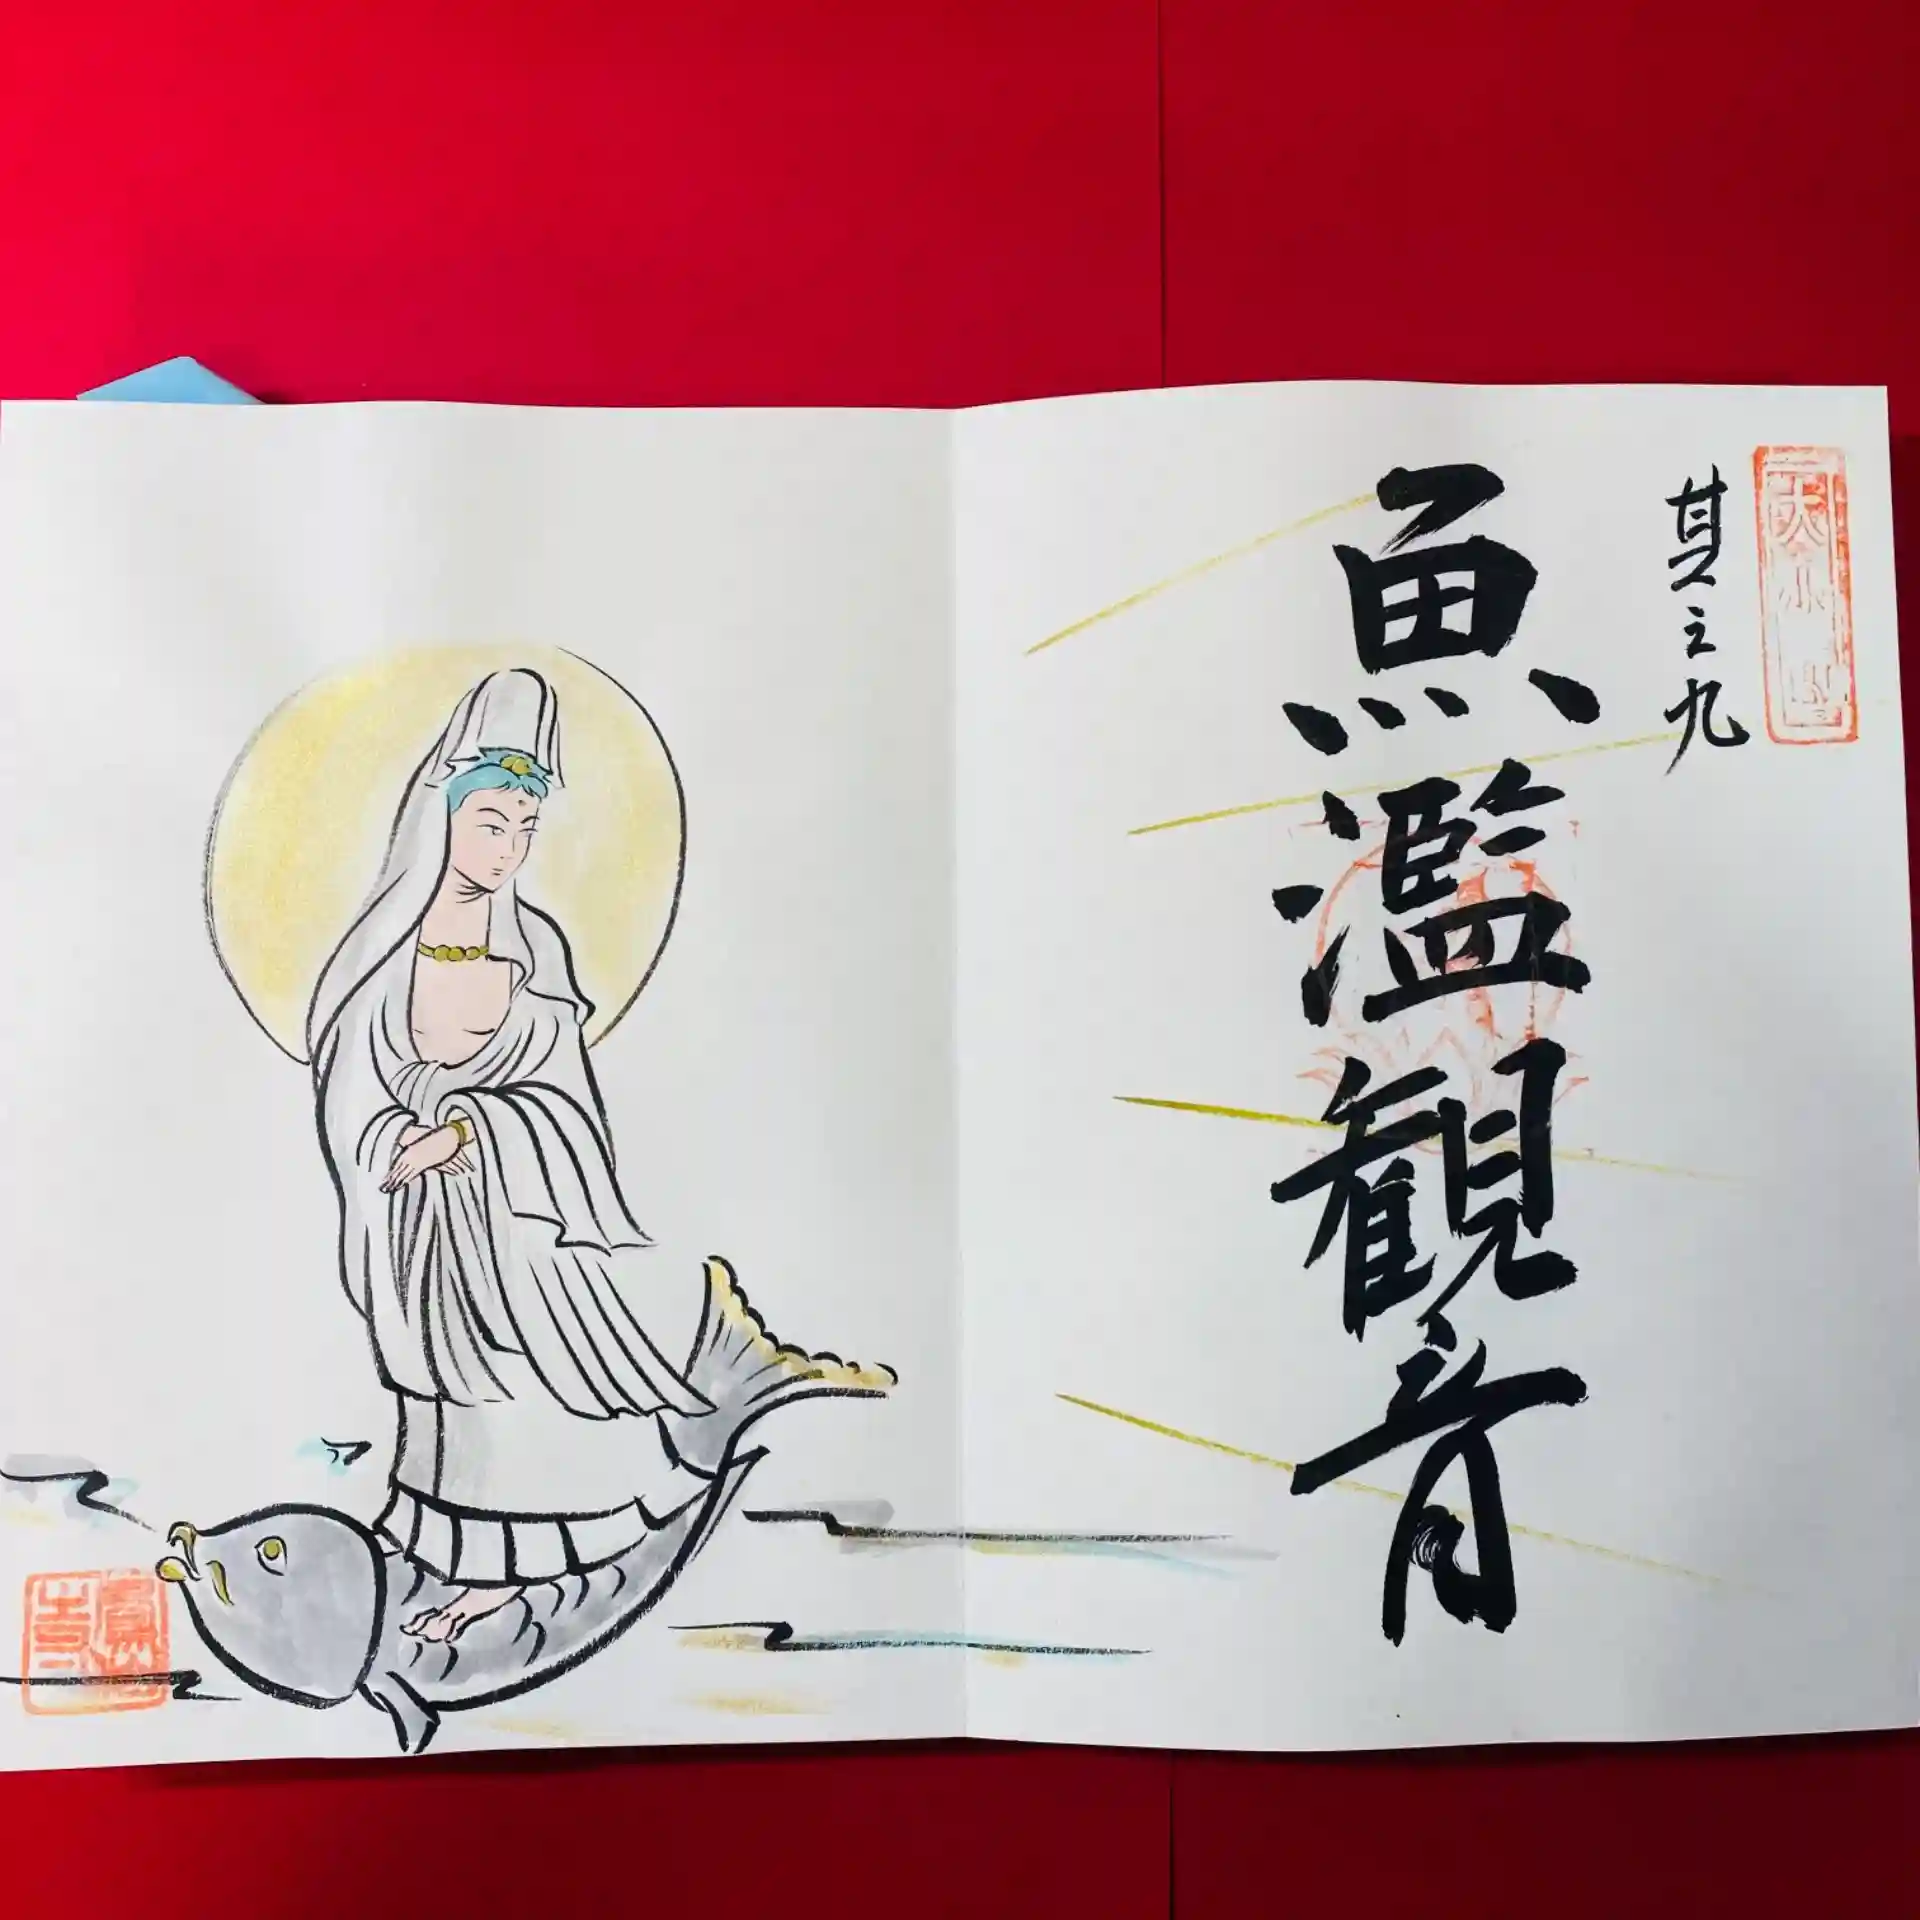 其之九
魚濫観音